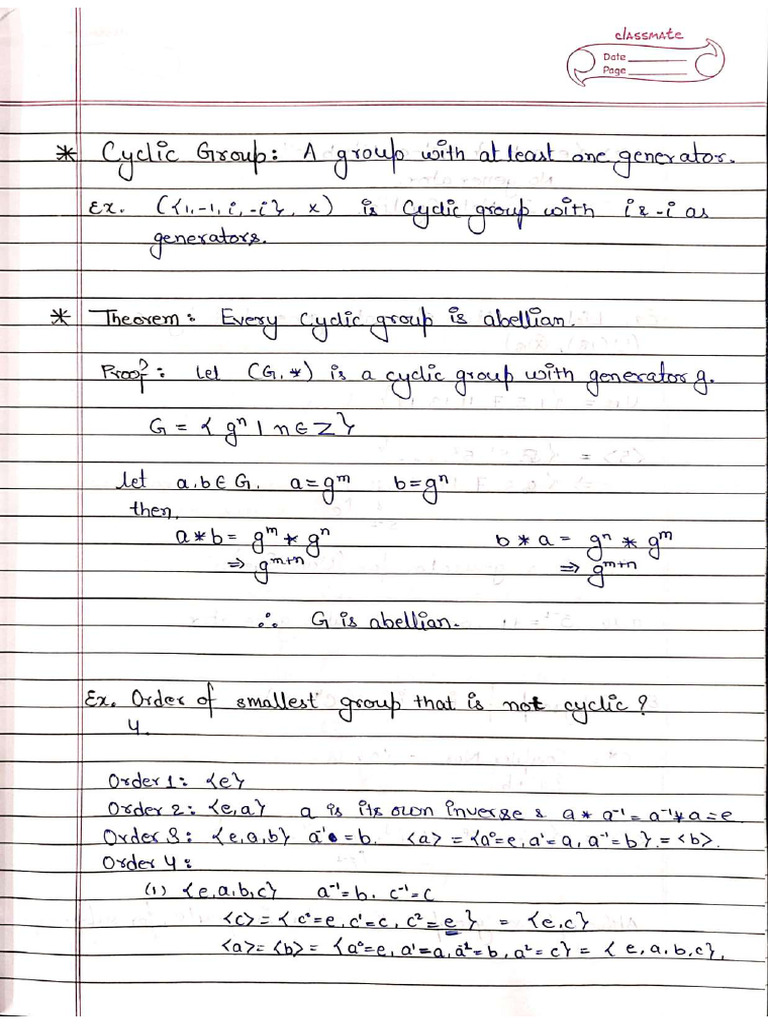 classmate
Date
Page
* Cyclic Group: A group with at least one generator.
Ex. ({1,-1,i,-i}, x) is Cyclic group with i & -i as
generators.
* Theorem: Every cyclic group is abellian.
Proof: Let (G,*) is a cyclic group with generator g.
G = {gⁿ | n ∈ Z}
let a,b ∈ G. a=gᵐ b=gⁿ
then,
a*b = gᵐ * gⁿ b*a = gⁿ * gᵐ
⇒ gᵐ⁺ⁿ ⇒ gᵐ⁺ⁿ
∴ G is abellian.
Ex. Order of smallest group that is not cyclic?
4.
Order 1: {e}
Order 2: {e,a} a is its own inverse & a * a⁻¹ = a⁻¹ * a = e.
Order 3: {e,a,b} a⁻¹ = b. <a> = {a⁰=e, a¹=a, a⁻¹=b} = <b>.
Order 4:
(1) {e,a,b,c} a⁻¹=b. c⁻¹=c
<c> = {c⁰=e, c¹=c, c²=e} = {e,c}
<a> = <b> = {a⁰=e, a¹=a, a²=b, a²=c} = {e,a,b,c}.